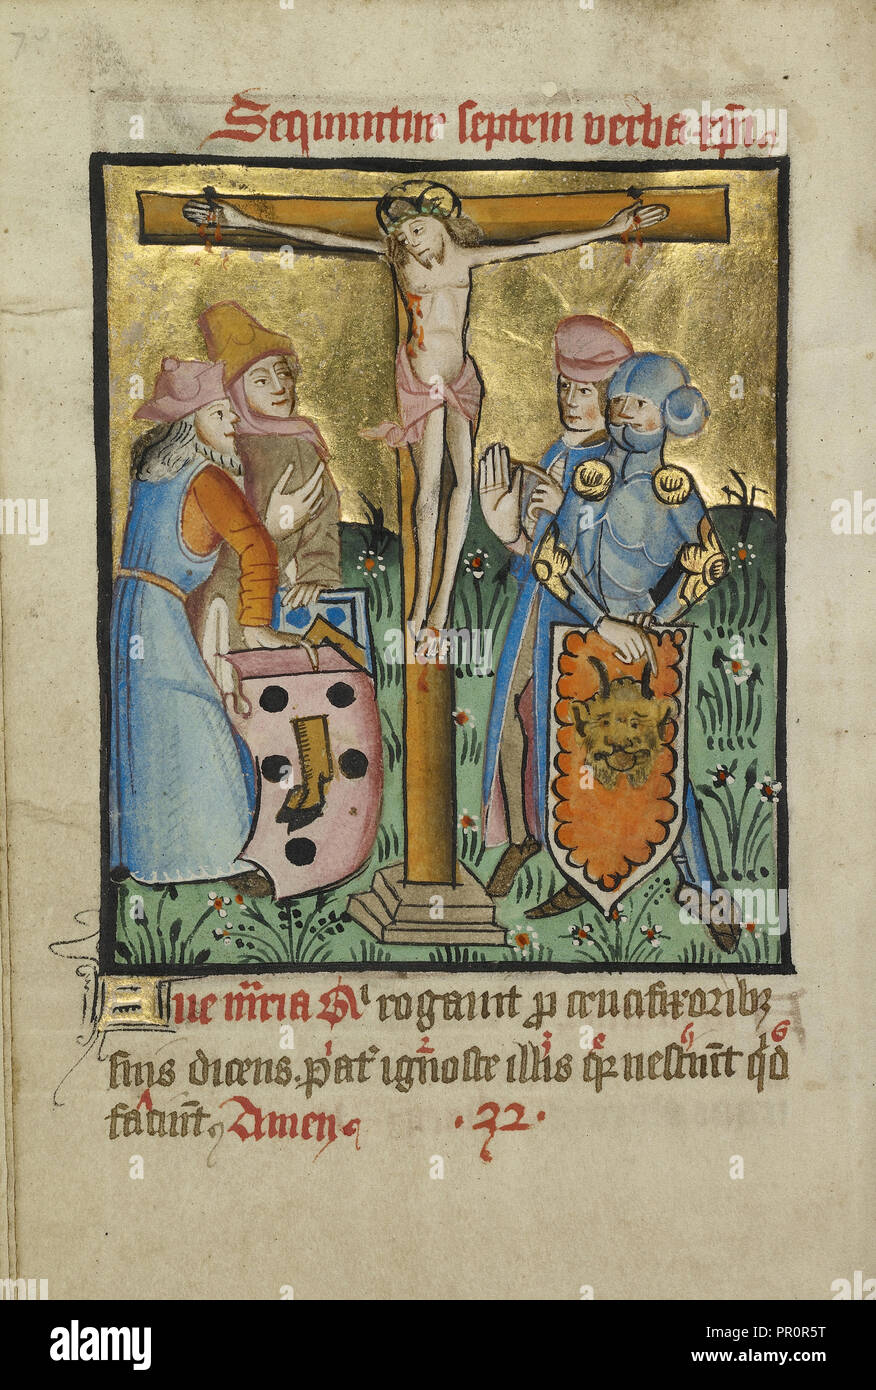 Sequuntur septem verba xpi
Aue maria Qi rogauit p crucifixoribz
suis dicens. pat' ignosce illis qr nesciunt qd
faciunt Amen .22.
alamy
Image ID: PR0R5T
www.alamy.com